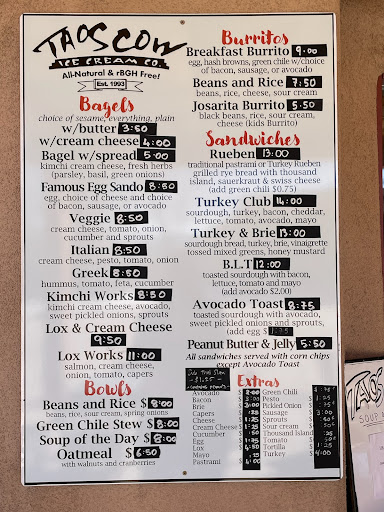 TAOS COW
ICE CREAM CO.
All-Natural & rBGH Free!
Est. 1993
Bagels
choice of sesame, everything, plain
w/butter 3:50
w/cream cheese 4:00
Bagel w/spread 5:00
kimchi cream cheese, fresh herbs
(parsley, basil, green onions)
Famous Egg Sando 8:50
egg, choice of cheese and choice
of bacon, sausage, or avocado
Veggie 8:50
cream cheese, tomato, onion,
cucumber and sprouts
Italian 8:50
cream cheese, pesto, tomato, onion
Greek 8:50
hummus, tomato, feta, cucumber
Kimchi Works 8:50
kimchi cream cheese, avocado,
sweet pickled onions, sprouts
Lox & Cream Cheese
9:50
Lox Works 11:00
salmon, cream cheese,
onion, tomato, capers
Bowls
Beans and Rice $8:00
beans, rice, sour cream, spring onions
Green Chile Stew $8:00
Soup of the Day $8:00
Oatmeal $6:50
with walnuts and cranberries
Burritos
Breakfast Burrito 9:00
egg, hash browns, green chile w/choice
of bacon, sausage, or avocado
Beans and Rice 7:50
beans, rice, cheese, sour cream
Josarita Burrito 5:50
black beans, rice, sour cream,
cheese (kids Burrito)
Sandwiches
Rueben 13:00
traditional pastrami or Turkey Rueben
grilled rye bread with thousand
island, sauerkraut & swiss cheese
(add green chili $0.75)
Turkey Club 14:00
sourdough, turkey, bacon, cheddar,
lettuce, tomato, avocado, mayo
Turkey & Brie 13:00
sourdough bread, turkey, brie, vinaigrette
tossed mixed greens, honey mustard
B.L.T 12:00
toasted sourdough with bacon,
lettuce, tomato and mayo
(add avocado $2.00)
Avocado Toast 8:75
toasted sourdough with avocado,
sweet pickled onions and sprouts,
(add egg $1.75)
Peanut Butter & Jelly 5:50
All sandwiches served with corn chips
except Avocado Toast
Extras
Avocado
Bacon
Brie
Capers
Cheese
Cream Cheese
Cucumber
Egg
Lox
Mayo
Pastrami
Green Chili
Pesto
Pickled Onion
Sausage
Sprouts
Sour cream
Thousand Island
Tomato
Tortilla
Turkey 4:00
TAOS